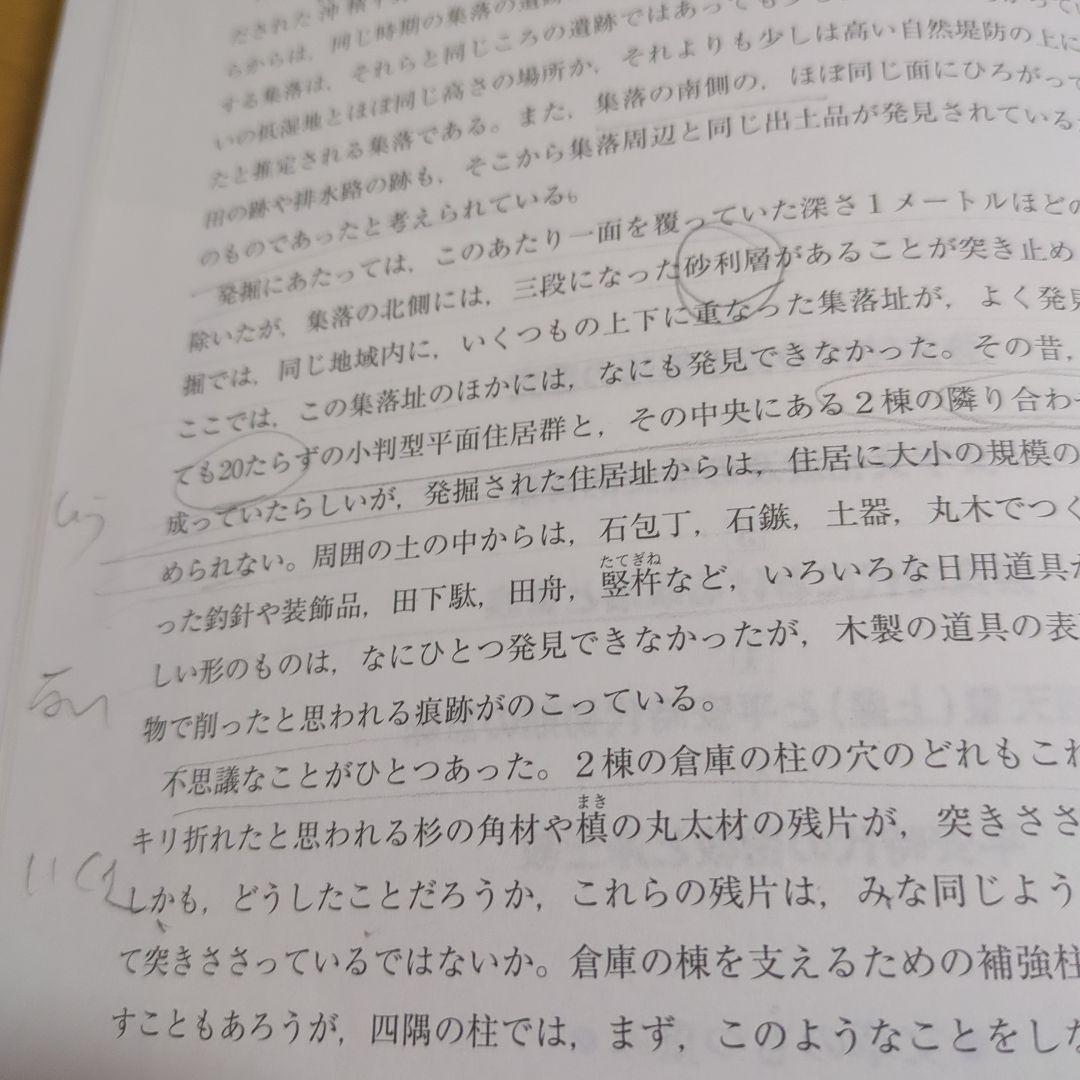 だされた沖積
らからは，同じ時期の集落の遺跡
する集落は，それらと同じころの遺跡ではあっても少
いの低湿地とほぼ同じ高さの場所か，それよりも少しは高い自然堤防の上に
たと推定される集落である。また，集落の南側の，ほぼ同じ面にひろがって
田の跡や排水路の跡も，そこから集落周辺と同じ出土品が発見されている
のものであったと考えられている。
発掘にあたっては，このあたり一面を覆っていた深さ1メートルほどの
除いたが，集落の北側には，三段になった砂利層があることが突き止め
掘では，同じ地域内に，いくつもの上下に重なった集落址が，よく発見
ここでは，この集落址のほかには，なにも発見できなかった。その昔，
ても20たらずの小判型平面住居群と，その中央にある2棟の隣り合わせ
成っていたらしいが，発掘された住居址からは，住居に大小の規模の
められない。周囲の土の中からは，石包丁，石鏃，土器，丸木でつく
った釣針や装飾品，田下駄，田舟，竪杵など，いろいろな日用道具が
たてぎね
しい形のものは，なにひとつ発見できなかったが，木製の道具の表
物で削ったと思われる痕跡がのこっている。
不思議なことがひとつあった。2棟の倉庫の柱の穴のどれもこれ
キリ折れたと思われる杉の角材や槙の丸太材の残片が，突きささ
まき
しかも，どうしたことだろうか，これらの残片は，みな同じよう
て突きささっているではないか。倉庫の棟を支えるための補強柱
すこともあろうが，四隅の柱では，まず，このようなことをしな